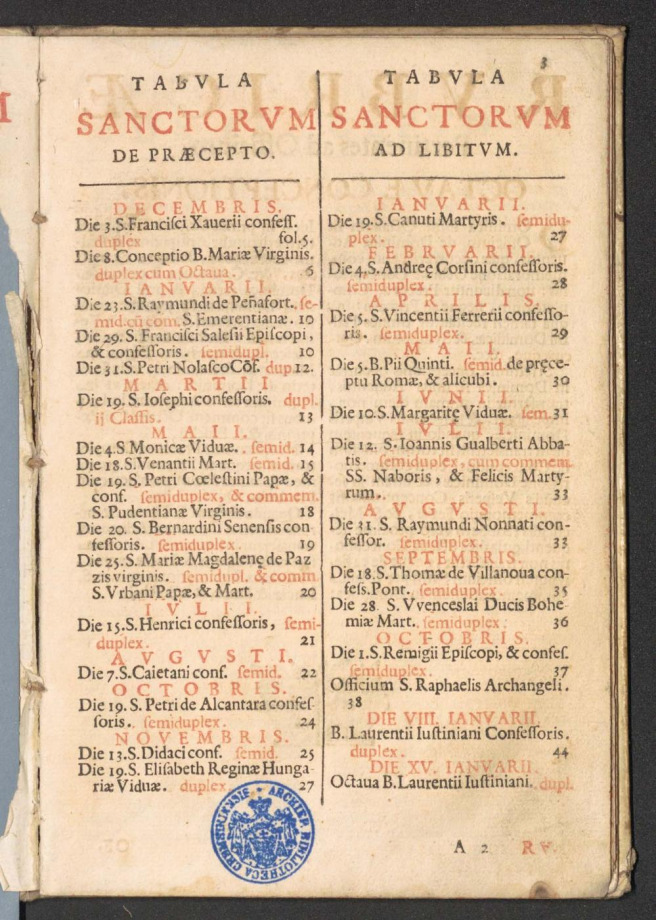 3
TABVLA
SANCTORVM
DE PRÆCEPTO.
DECEMBRIS.
Die 3.S.Francisci Xauerii confess.
duplex fol.5.
Die 8.Conceptio B.Mariæ Virginis.
duplex cum Octaua. 6
IANVARII.
Die 23.S.Raymundi de Peñafort. se-
mid.cū com. S.Emerentianæ. 10
Die 29. S. Francisci Salesii Episcopi,
& confessoris. semidupl. 10
Die 31.S.Petri Nolasco Cōf. dup.12.
MARTII
Die 19. S. Iosephi confessoris. dupl.
ij Classis. 13
MAII.
Die 4.S Monicæ Viduæ. semid. 14
Die 18.S.Venantii Mart. semid. 15
Die 19. S. Petri Cœlestini Papæ, &
conf. semiduplex, & commem.
S. Pudentianæ Virginis. 18
Die 20. S. Bernardini Senensis con
fessoris. semiduplex. 19
Die 25.S. Mariæ Magdalenę de Paz
zis virginis. semidupl. & comm
S.Vrbani Papæ, & Mart. 20
IVLII.
Die 15.S.Henrici confessoris, semi-
duplex. 21
AVGVSTI.
Die 7.S.Caietani conf. semid. 22
OCTOBRIS.
Die 19. S. Petri de Alcantara confes-
soris. semiduplex. 24
NOVEMBRIS.
Die 13.S.Didaci conf. semid. 25
Die 19.S. Elisabeth Reginæ Hunga-
riæ Viduæ. duplex 27
TABVLA
SANCTORVM
AD LIBITVM.
IANVARII.
Die 19.S.Canuti Martyris. semidu-
plex. 27
FEBRVARII.
Die 4.S. Andreę Corsini confessoris.
semiduplex. 28
APRILIS.
Die 5. S.Vincentii Ferrerii confesso-
ris. semiduplex. 29
MAII.
Die 5.B.Pii Quinti. semid. de pręce-
ptu Romæ, & alicubi. 30
IVNII.
Die 10.S.Margaritę Viduæ. sem. 31
IVLII.
Die 12. S.Ioannis Gualberti Abba-
tis. semiduplex, cum commem.
SS. Naboris, & Felicis Marty-
rum. 33
AVGVSTI.
Die 31. S. Raymundi Nonnati con-
fessor. semiduplex. 33
SEPTEMBRIS.
Die 18.S.Thomæ de Villanoua con-
fess.Pont. semiduplex. 35
Die 28 S. Vvenceslai Ducis Bohe
miæ Mart. semiduplex. 36
OCTOBRIS.
Die 1.S.Remigii Episcopi, & confes.
semiduplex. 37
Officium S. Raphaelis Archangeli.
38
DIE VIII. IANVARII.
B. Laurentii Iustiniani Confessoris.
duplex. 44
DIE XV. IANVARII.
Octaua B.Laurentii Iustiniani. dupl.
A 2 RV.
ARCHIEP. BIBLIOTHECA